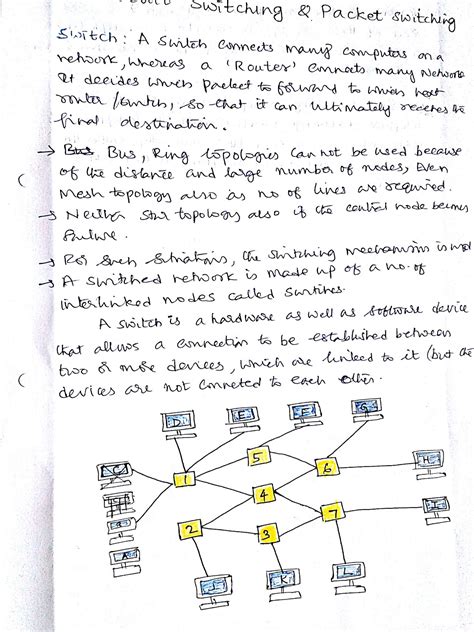 Switching & Packet Switching
Switch : A Switch Connects many Computers on a
network, whereas a 'Router' Connects many Networks
It decides which Packet to forward to which next
router /switch, so that it can ultimately receives the
final destination.
→ Bus, Ring topologies Can not be used because
of the distance and large number of nodes, Even
Mesh topology also as no of lines are required.
→ Neither Star topology also if the central node becomes
failure.
→ For Such Situations, the Switching mechanism is used
→ A Switched network is made up of a no. of
interlinked nodes called Switches.
A Switch is a hardware as well as Software device
that allows a Connection to be established between
two or more devices, which are linked to it (but the
devices are not Connected to each other.
D E F G
C
5
1
6
H
4
I
B
2
7
3
A
J K L